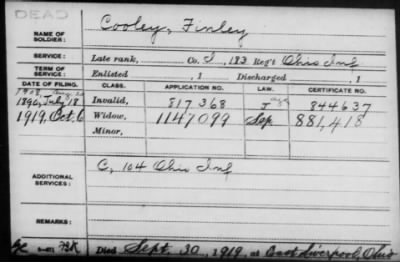 DEAD
NAME OF SOLDIER: Cooley, Finley
SERVICE: Late rank, Co. I, 183 Reg't Ohio Inf
TERM OF SERVICE: Enlisted , 1 Discharged , 1
DATE OF FILING. CLASS. APPLICATION NO. LAW. CERTIFICATE NO.
1908,
1890, July 18 Invalid, 817368 J 844637
1919, Oct. 6 Widow, 1147099 Sep. 881,418
Minor,
ADDITIONAL SERVICES: C, 104 Ohio Inf
REMARKS:
Died Sept. 30, 1919, at East Liverpool, Ohio